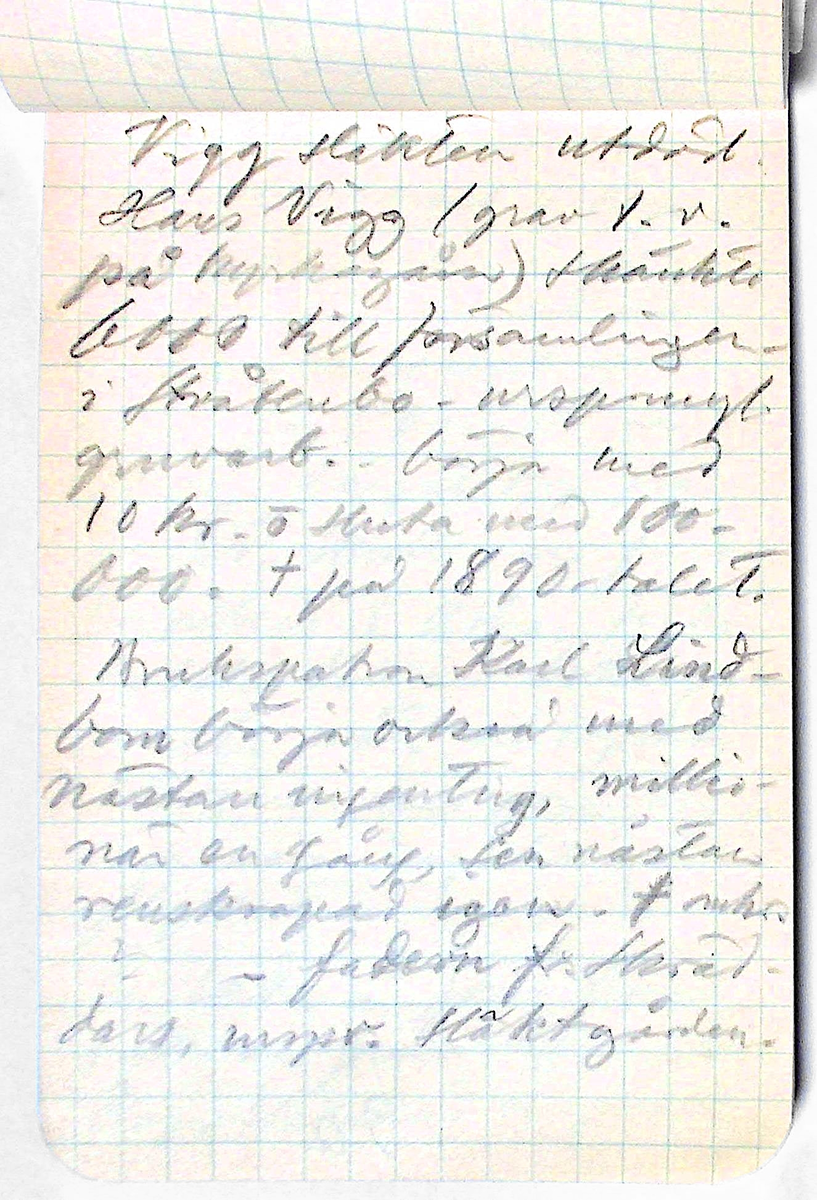 Vigg släkten utdöd.
Hans Vigg (grav t. v.
på kyrkogården) skänkte
6000 till församlingen
i Stråtenbo - ursprungl.
gruvarb. - börja med
10 kr. o sluta med 100-
000. † på 1890-talet.
Brukspatron Karl Lind-
bom börja också med
nästan ingenting, millio-
när en gång, sen nästan
renskrapad igen. †
? - fadern fr. Skräd-
dars, urspr. släktgården.